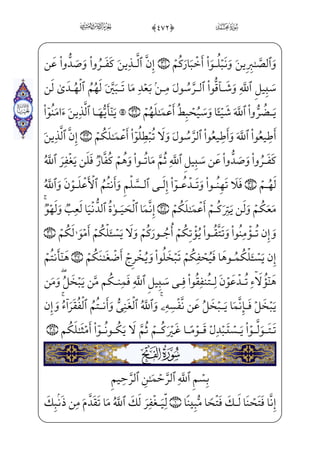 ﴿٤٧٢﴾
وَٱلصَّٰبِرِينَ وَنَبْلُوَا۟ أَخْبَارَكُمْ ﴿٣١﴾ إِنَّ ٱلَّذِينَ كَفَرُوا۟ وَصَدُّوا۟ عَن
سَبِيلِ ٱللَّهِ وَشَآقُّوا۟ ٱلرَّسُولَ مِنۢ بَعْدِ مَا تَبَيَّنَ لَهُمُ ٱلْهُدَىٰ لَن
يَضُرُّوا۟ ٱللَّهَ شَيْـًٔا وَسَيُحْبِطُ أَعْمَٰلَهُمْ ﴿٣٢﴾ ۞ يَٰٓأَيُّهَا ٱلَّذِينَ ءَامَنُوٓا۟
أَطِيعُوا۟ ٱللَّهَ وَأَطِيعُوا۟ ٱلرَّسُولَ وَلَا تُبْطِلُوٓا۟ أَعْمَٰلَكُمْ ﴿٣٣﴾ إِنَّ ٱلَّذِينَ
كَفَرُوا۟ وَصَدُّوا۟ عَن سَبِيلِ ٱللَّهِ ثُمَّ مَاتُوا۟ وَهُمْ كُفَّارٌ فَلَن يَغْفِرَ ٱللَّهُ
لَهُمْ ﴿٣٤﴾ فَلَا تَهِنُوا۟ وَتَدْعُوٓا۟ إِلَى ٱلسَّلْمِ وَأَنتُمُ ٱلْأَعْلَوْنَ وَٱللَّهُ
مَعَكُمْ وَلَن يَتِرَكُمْ أَعْمَٰلَكُمْ ﴿٣٥﴾ إِنَّمَا ٱلْحَيَوٰةُ ٱلدُّنْيَا لَعِبٌ وَلَهْوٌ ۚ
وَإِن تُؤْمِنُوا۟ وَتَتَّقُوا۟ يُؤْتِكُمْ أُجُورَكُمْ وَلَا يَسْـَٔلْكُمْ أَمْوَٰلَكُمْ ﴿٣٦﴾
إِن يَسْـَٔلْكُمُوهَا فَيُحْفِكُمْ تَبْخَلُوا۟ وَيُخْرِجْ أَضْغَٰنَكُمْ ﴿٣٧﴾ هَٰٓأَنتُمْ
هَٰٓؤُلَآءِ تُدْعَوْنَ لِتُنفِقُوا۟ فِى سَبِيلِ ٱللَّهِ فَمِنكُم مَّن يَبْخَلُ ۖ وَمَن
يَبْخَلْ فَإِنَّمَا يَبْخَلُ عَن نَّفْسِهِۦ ۚ وَٱللَّهُ ٱلْغَنِىُّ وَأَنتُمُ ٱلْفُقَرَآءُ ۚ وَإِن
تَتَوَلَّوْا۟ يَسْتَبْدِلْ قَوْمًا غَيْرَكُمْ ثُمَّ لَا يَكُونُوٓا۟ أَمْثَٰلَكُم ﴿٣٨﴾
سُورَةُ الْفَتْحِ
بِسْمِ ٱللَّهِ ٱلرَّحْمَٰنِ ٱلرَّحِيمِ
إِنَّا فَتَحْنَا لَكَ فَتْحًا مُّبِينًا ﴿١﴾ لِّيَغْفِرَ لَكَ ٱللَّهُ مَا تَقَدَّمَ مِن ذَنۢبِكَ